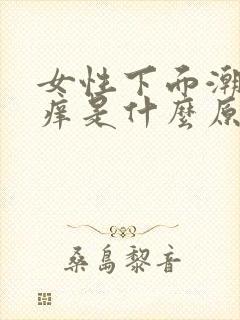 女性下而潮
痒是什麼原
桑島黎音